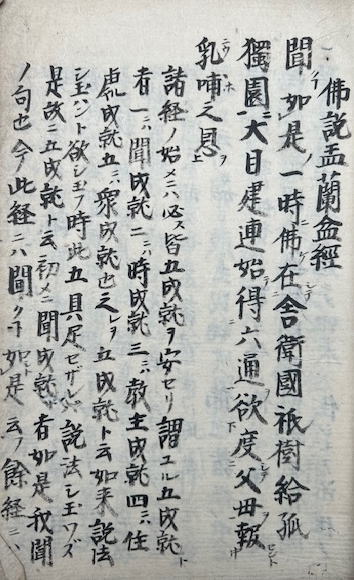 佛説盂蘭盆經
聞如是一時佛在舎衛國祇樹給孤
獨園大目建連始得六通欲度父母報
乳哺之恩
諸経ノ始メニハ必ス皆五成就ヲ安セリ謂ユル五成就ト
者一ニハ聞成就二ニハ時成就三ニハ教主成就四ニハ住
處成就五ニハ衆成就也之レヲ五成就ト云如来説法
シ玉ハント欲シ玉フ時此五具足セザレハ説法シ玉ワズ
是故ニ五成就ト云初メニ聞成就者如是我聞
ノ句也今此経ニハ聞クヿ如ト是云フ餘経ニハ